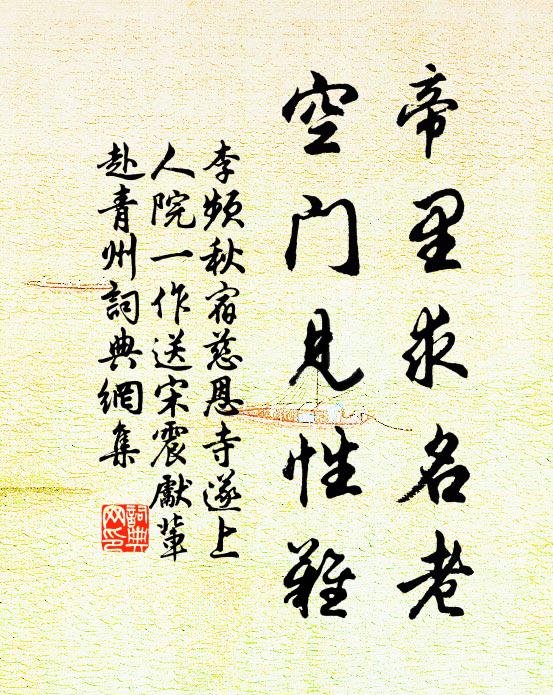 帝里求名老
空门见性难
李频秋宿慈恩寺遂上
人院一作送宋震献辈
赴青州詞典網集
詞典网印